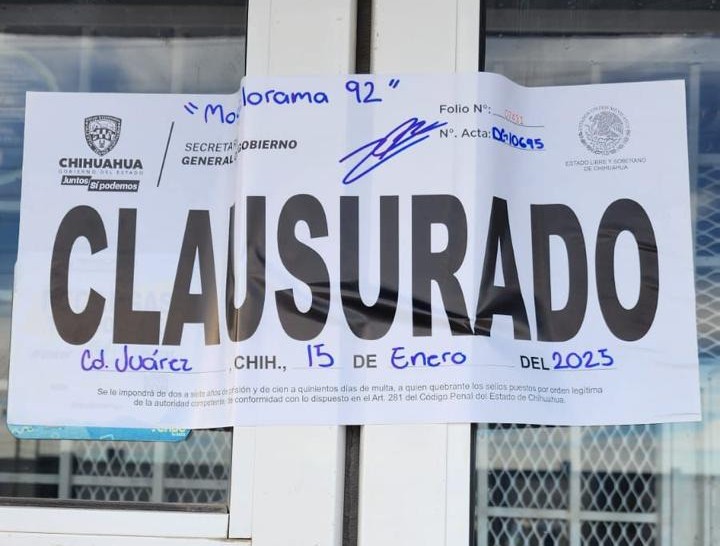 "Modelorama 92"
Folio N°:
N°. Acta: DG-10695
CHIHUAHUA
GOBIERNO DEL ESTADO
Juntos Sí podemos
SECRETARÍA GOBIERNO
GENERAL
ESTADO LIBRE Y SOBERANO
DE CHIHUAHUA
CLAUSURADO
Cd. Juárez, CHIH., 15 DE Enero DEL 2025
Se le impondrá de dos a siete años de prisión y de cien a quinientos días de multa, a quien quebrante los sellos puestos por orden legítima
de la autoridad competente, de conformidad con lo dispuesto en el Art. 281 del Código Penal del Estado de Chihuahua.